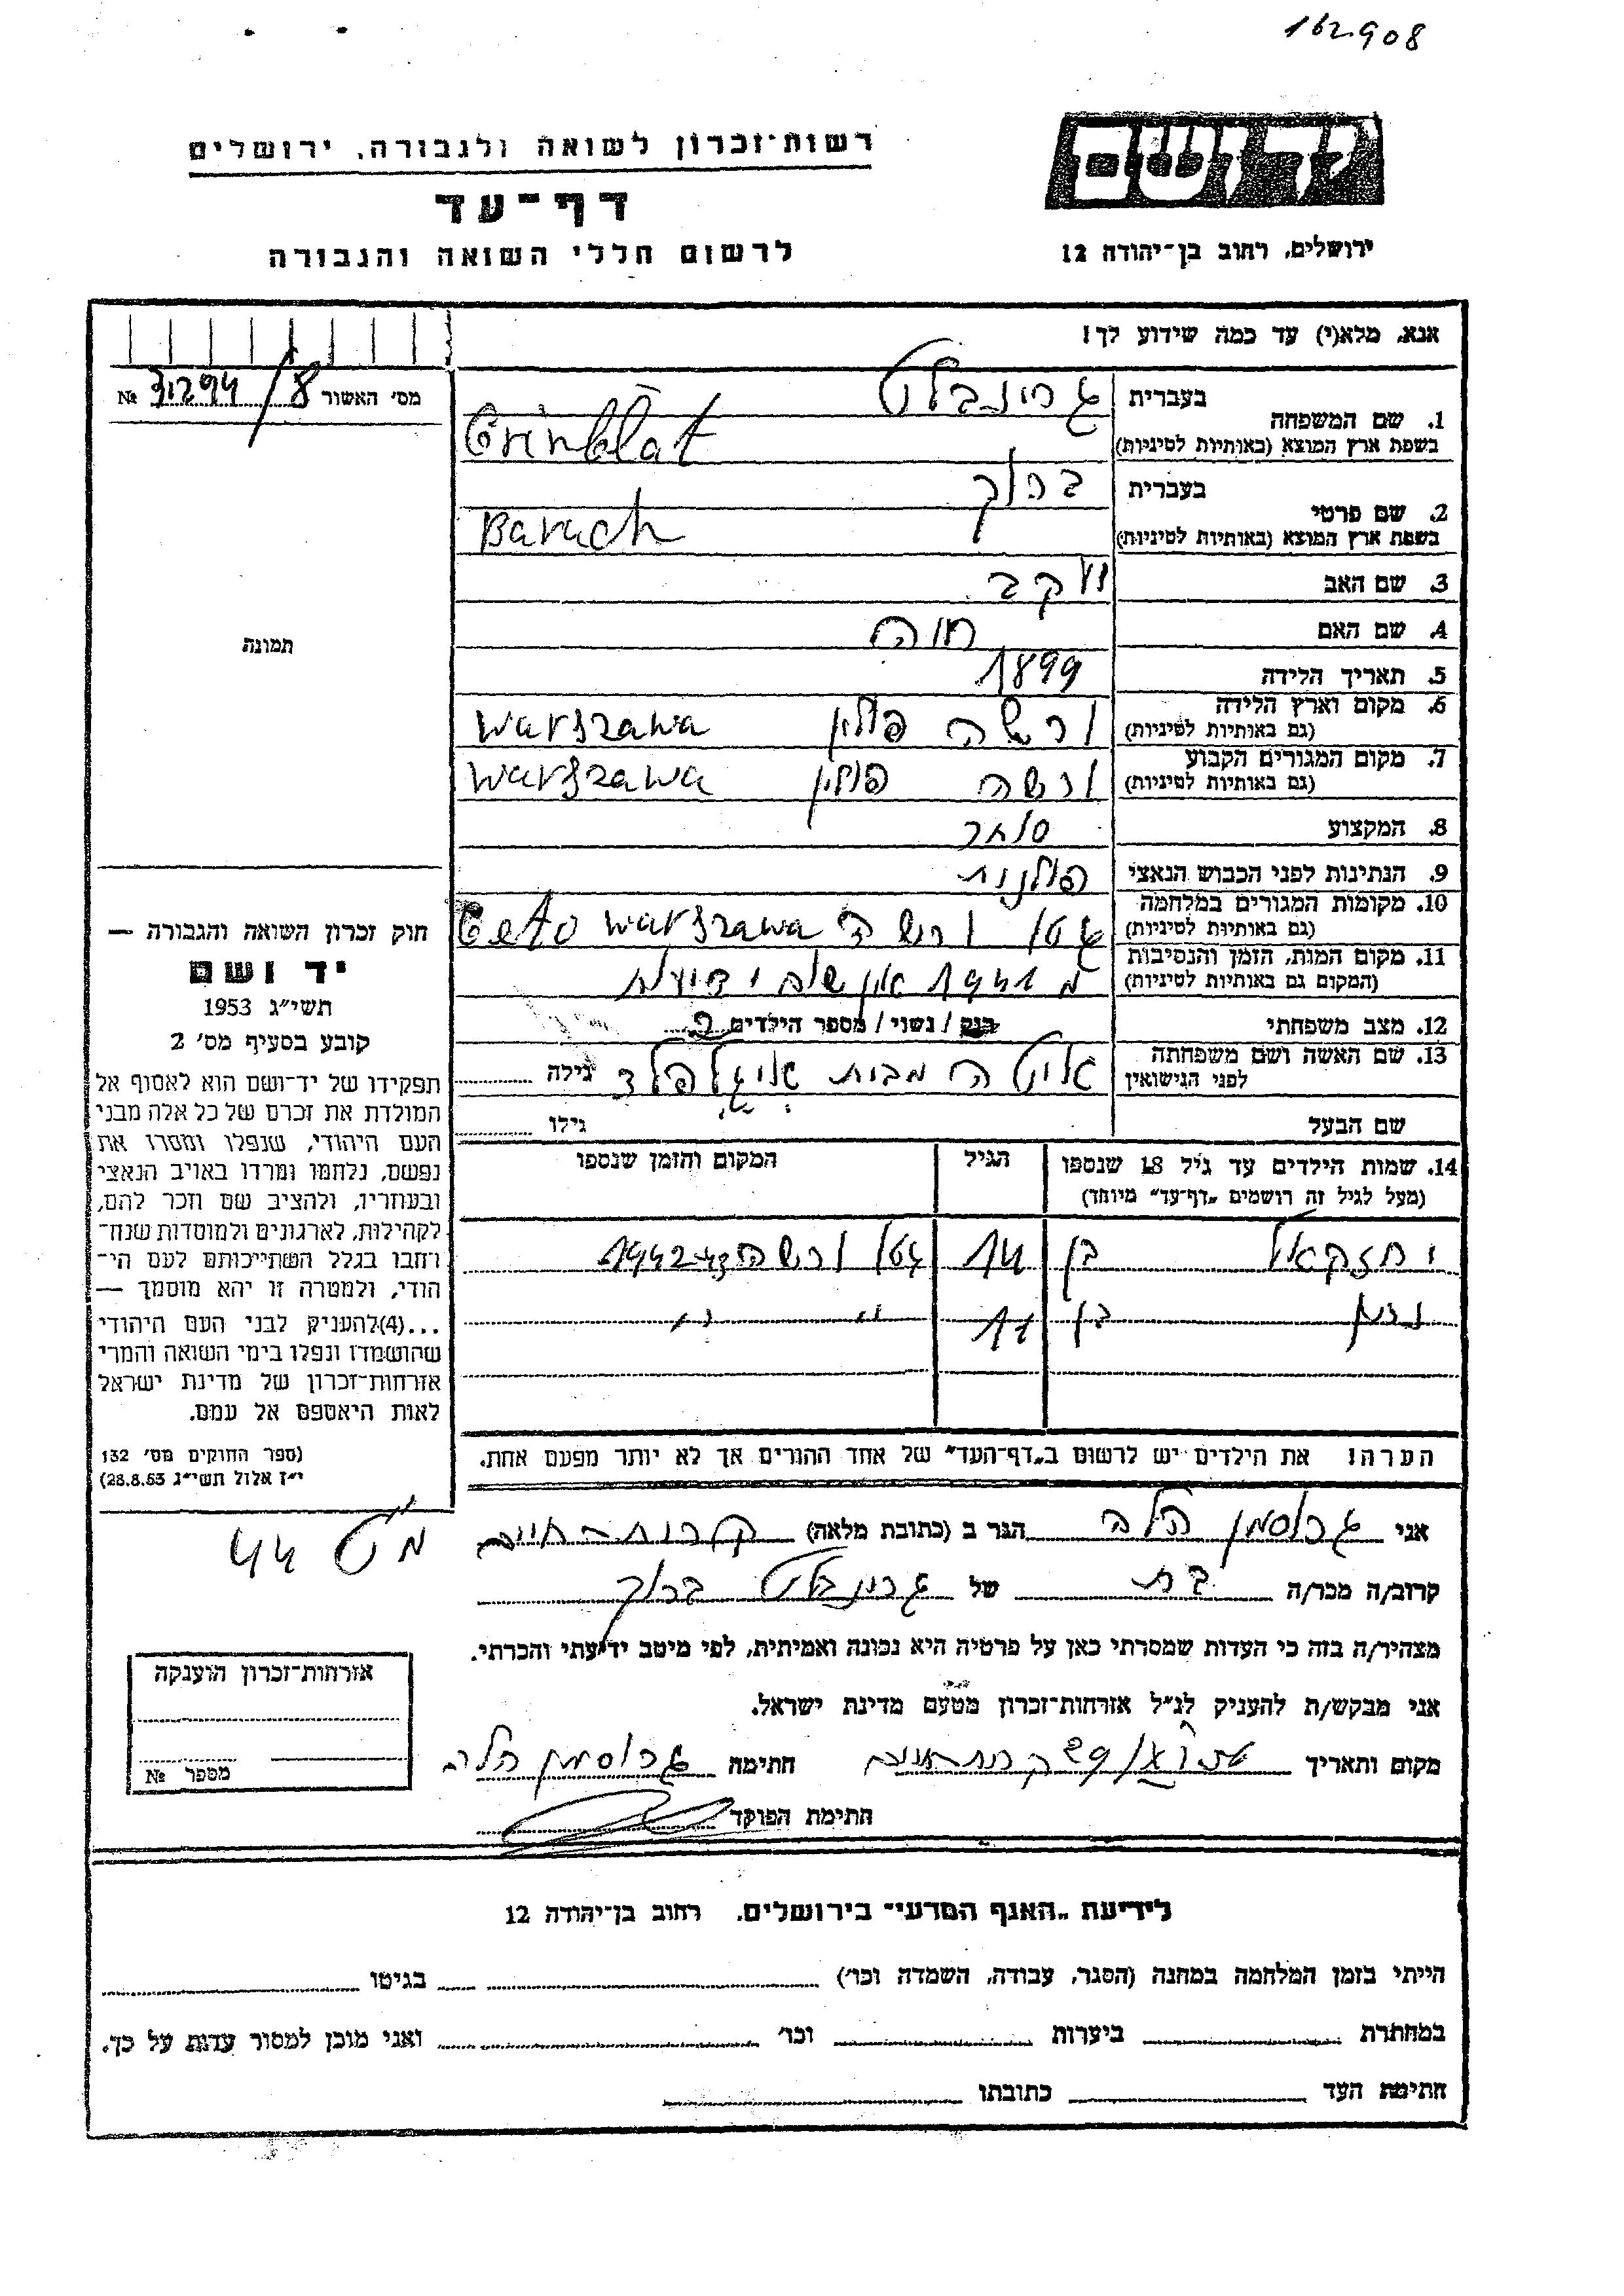 162.908
רשות־זכרון לשואה ולגבורה, ירושלים
דף־עד
לרשום חללי השואה והגבורה
ידושם
ירושלים, רחוב בן־יהודה 12
אנא, מלא(י) עד כמה שידוע לך!
מס׳ האשור 31294/8 №
1. שם המשפחה
בעברית גרינבלט
בשפת ארץ המוצא (באותיות לטיניות) Grinblat
2. שם פרטי
בעברית ברוך
בשפת ארץ המוצא (באותיות לטיניות) Baruch
3. שם האב יעקב
4. שם האם חוה
5. תאריך הלידה 1899
6. מקום וארץ הלידה (גם באותיות לטיניות) ורשה פולין Warszawa
7. מקום המגורים הקבוע (גם באותיות לטיניות) ורשה פולין Warszawa
8. המקצוע סוחר
9. הנתינות לפני הכבוש הנאצי פולנית
10. מקומות המגורים במלחמה (גם באותיות לטיניות) גטו ורשה Geto Warszawa
11. מקום המות, הזמן והנסיבות (המקום גם באותיות לטיניות) מ 1941 אין שום ידיעות
12. מצב משפחתי רוק / נשוי / מספר הילדים 2
13. שם האשה ושם משפחתה לפני הנישואין מבית גילה
שם הבעל גילו
14. שמות הילדים עד גיל 18 שנספו (מעל לגיל זה רושמים „דף־עד״ מיוחד)
הגיל
המקום והזמן שנספו
יחזקאל בן 14 גטו ורשה 1942-43
נתן בן 11 " "
הערה! את הילדים יש לרשום ב„דף־העד״ של אחד ההורים אך לא יותר מפעם אחת.
תמונה
חוק זכרון השואה והגבורה —
יד ושם
תשי״ג 1953
קובע בסעיף מס׳ 2
תפקידו של יד־ושם הוא לאסוף אל
המולדת את זכרם של כל אלה מבני
העם היהודי, שנפלו ומסרו את
נפשם, נלחמו ומרדו באויב הנאצי
ובעוזריו, ולהציב שם וזכר להם,
לקהילות, לארגונים ולמוסדות שנח־
רחבו בגלל השתייכותם לעם הי־
הודי, ולמטרה זו יהא מוסמך —
...(4)להעניק לבני העם היהודי
שהושמדו ונפלו בימי השואה והמרי
אזרחות־זכרון של מדינת ישראל
לאות היאספם אל עמם.
(ספר החוקים מס׳ 132
י״ז אלול תשי״ג 28.8.53)
אני גרוסמן הלה הגר ב (כתובת מלאה) קרית־חיים
44
קרוב/ה מכר/ה בת של גרינבלט ברוך
מצהיר/ה בזה כי העדות שמסרתי כאן על פרטיה היא נכונה ואמיתית, לפי מיטב ידיעתי והכרתי.
אני מבקש/ת להעניק לנ״ל אזרחות־זכרון מטעם מדינת ישראל.
מקום ותאריך קרית חיים חתימה גרוסמן הלה
חתימת הפוקד
אזרחות־זכרון הוענקה
מספר №
לידיעת „האגף המדעי״ בירושלים, רחוב בן־יהודה 12
הייתי בזמן המלחמה במחנה (הסגר, עבודה, השמדה וכו׳) בגיטו
במחתרת ביערות וכו׳ ואני מוכן למסור עדות על כך.
חתימת העד כתובתו